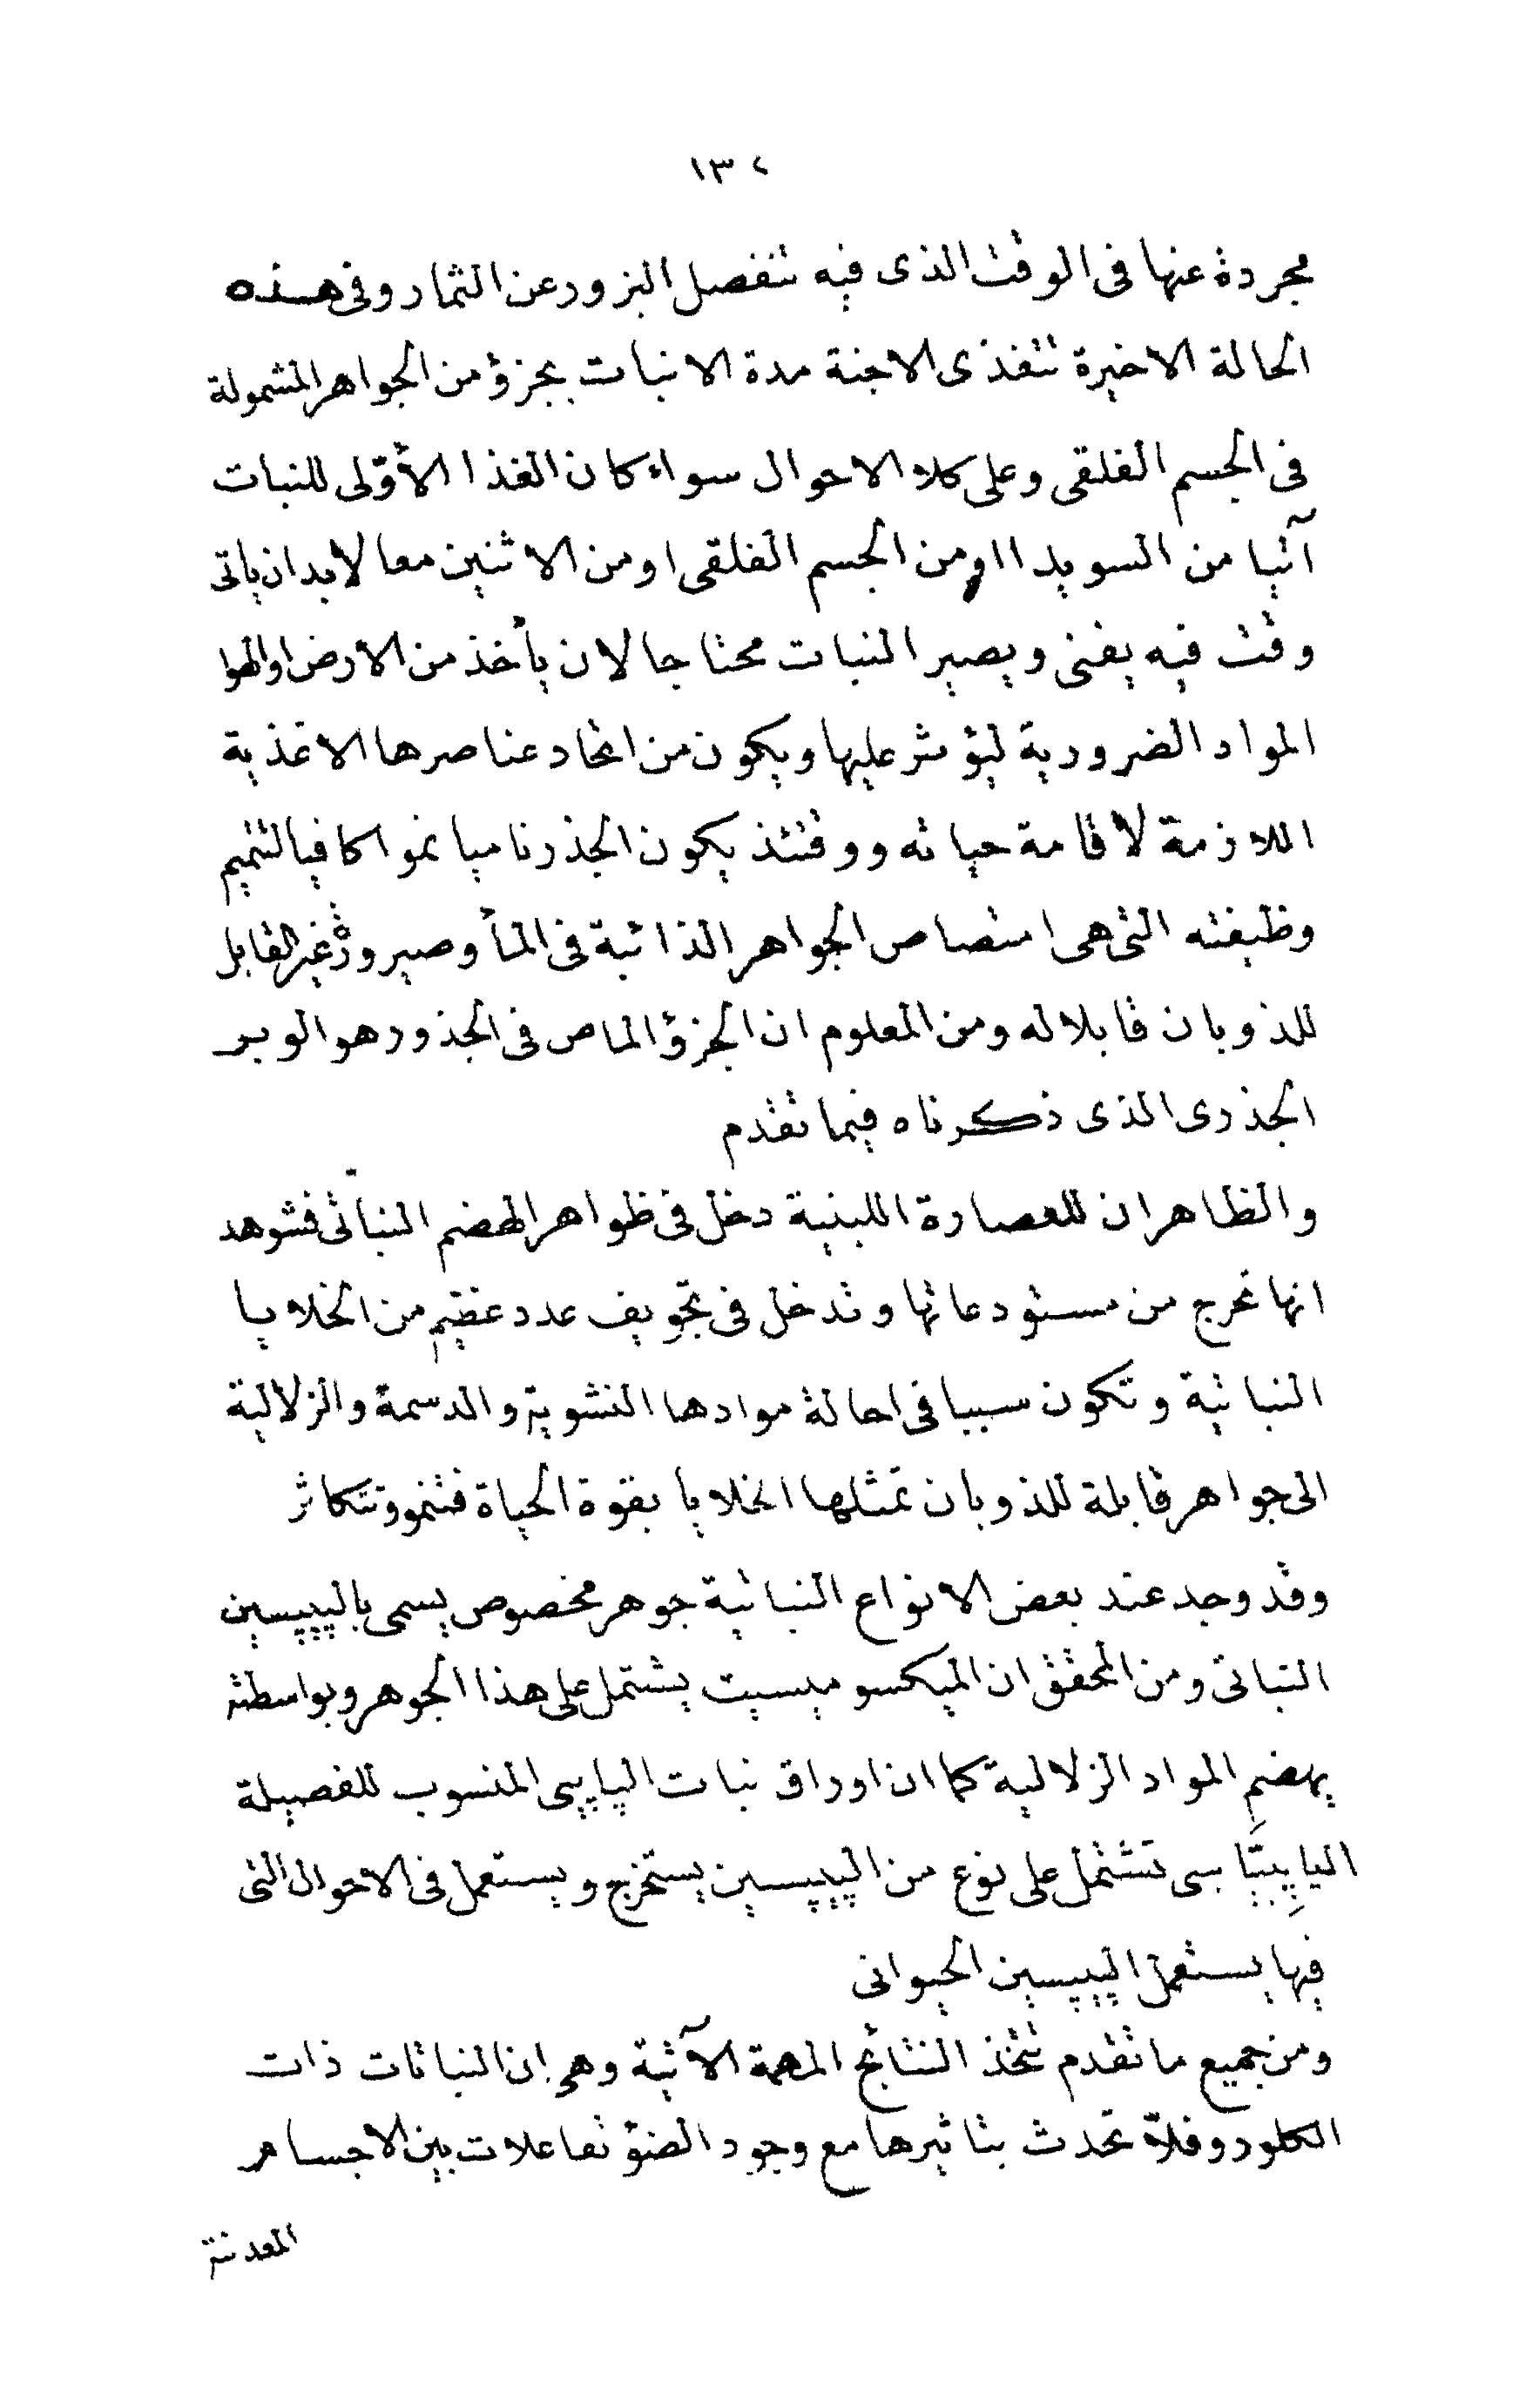 ١٣٢
مجردة عنها فى الوقت الذى فيه تنفصل البزور عن الثمار وفى هـذه
الحالة الاخيرة تتغذى الاجنة مدة الانبات بجزؤ من الجواهر المشمولة
فى الجسم الفلقى وعلى كلا الاحوال سواء كان الغذا الأوّلى للنبات
آتيا من السويدا او من الجسم الفلقى او من الاثنين معا لابد ان ياتى
وقت فيه يفنى ويصير النبات محتاجا لان يأخذ من الارض او الهوا
المواد الضرورية ليؤثر عليها ويكون من اتحاد عناصرها الاغذية
اللازمة لأقامة حياته ووقتئذ يكون الجذر ناميا نموا كافيا لتتميم
وظيفته التى هى امتصاص الجواهر الذائبة فى المأ وصيرورة غير القابل
للذوبان قابلا له ومن المعلوم ان الجزؤ الماص فى الجذور هو الوبر
الجذرى الذى ذكرناه فيما تقدم
والظاهر ان للعصارة اللبنية دخل فى ظواهر الهضم النباتى فشوهد
انها تخرج من مستودعاتها وتدخل فى تجويف عدد عظيم من الخلايا
النباتية وتكون سببا فى احالة موادها النشوية والدسمة والزلالية
الى جواهر قابلة للذوبان تمثلها الخلايا بقوة الحياة فتنمو وتتكاثر
وقد وجد عند بعض الانواع النباتية جوهر مخصوص يسمى بالپيپسين
النباتى ومن المحقق ان الميكسوميسيت يشتمل على هذا الجوهر وبواسطته
يهضم المواد الزلالية كما ان اوراق نبات الپاپيى المنسوب للفصيلة
الپاپيياسى تشتمل على نوع من الپيپسين يستخرج ويستعمل فى الاحوال التى
فيها يستعمل الپيپسين الحيوانى
ومن جميع ما تقدم تتخذ النتائج المهمة الآتية وهى ان النباتات ذات
الكلوروفلّا تحدث بتاثيرها مع وجود الضؤ تفاعلات بين الاجسام
المعدنية